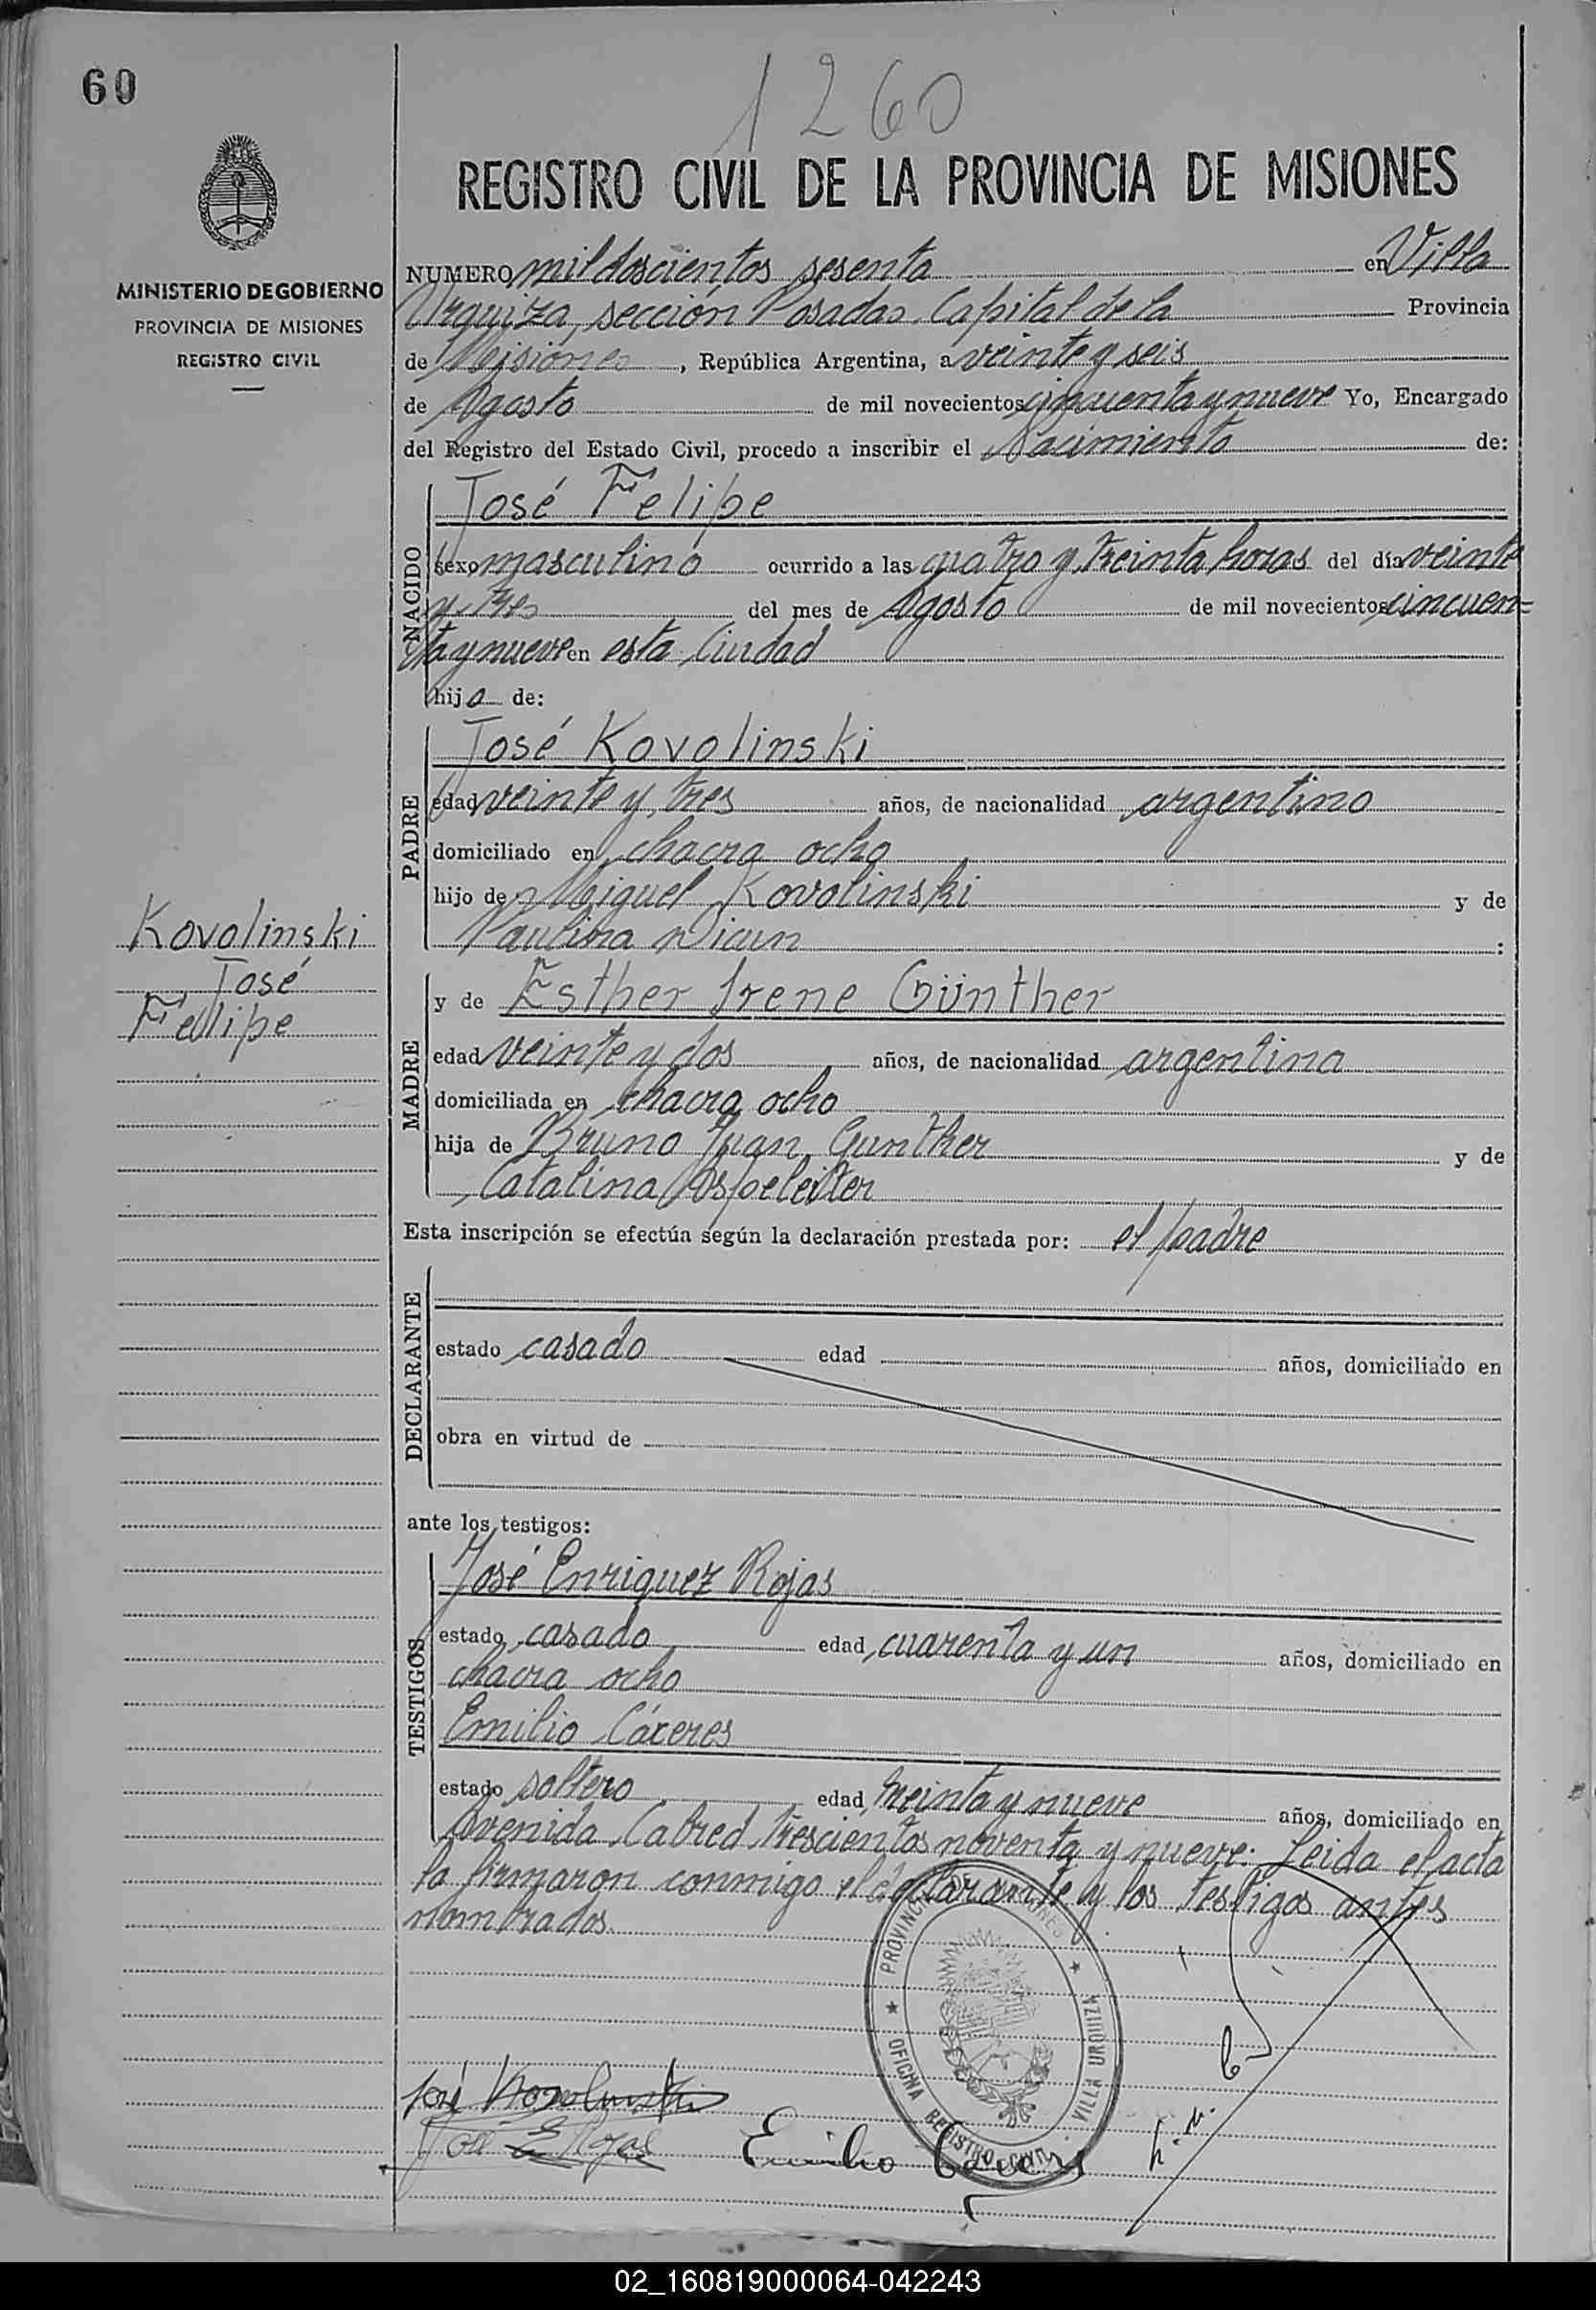 60
1260
REGISTRO CIVIL DE LA PROVINCIA DE MISIONES
MINISTERIO DE GOBIERNO
PROVINCIA DE MISIONES
REGISTRO CIVIL
NUMERO mil doscientos sesenta en Villa
Urquiza, sección Posadas, Capital de la Provincia
de Misiones, República Argentina, a veinte y seis
de Agosto de mil novecientos cincuenta y nueve Yo, Encargado
del Registro del Estado Civil, procedo a inscribir el Nacimiento de:
NACIDO
José Felipe
sexo masculino ocurrido a las cuatro y treinta horas del día veinte
y tres del mes de Agosto de mil novecientos cincuen=
ta y nueve en esta Ciudad
hijo de:
PADRE
José Kovolinski
edad veinte y tres años, de nacionalidad argentino
domiciliado en chacra ocho
hijo de Miguel Kovolinski y de
Paulina :
Kovolinski
José
Felipe
MADRE
y de Esther Irene Günther
edad veinte y dos años, de nacionalidad argentina
domiciliada en chacra ocho
hija de Bruno Juan Gunther y de
Catalina
Esta inscripción se efectúa según la declaración prestada por: el padre
DECLARANTE
estado casado edad años, domiciliado en
obra en virtud de
ante los testigos:
TESTIGOS
José Enriquez Rojas
estado casado edad cuarenta y un años, domiciliado en
chacra ocho
Emilio Cáceres
estado soltero edad treinta y nueve años, domiciliado en
Avenida Cabred trescientos noventa y nueve: Leida el acta
la firmaron conmigo el declarante y los testigos antes
nombrados
PROVINCIA DE MISIONES
OFICINA REGISTRO CIVIL
VILLA URQUIZA
José Kovolinski
José E Rojas
Emilio Caceres
02_160819000064-042243